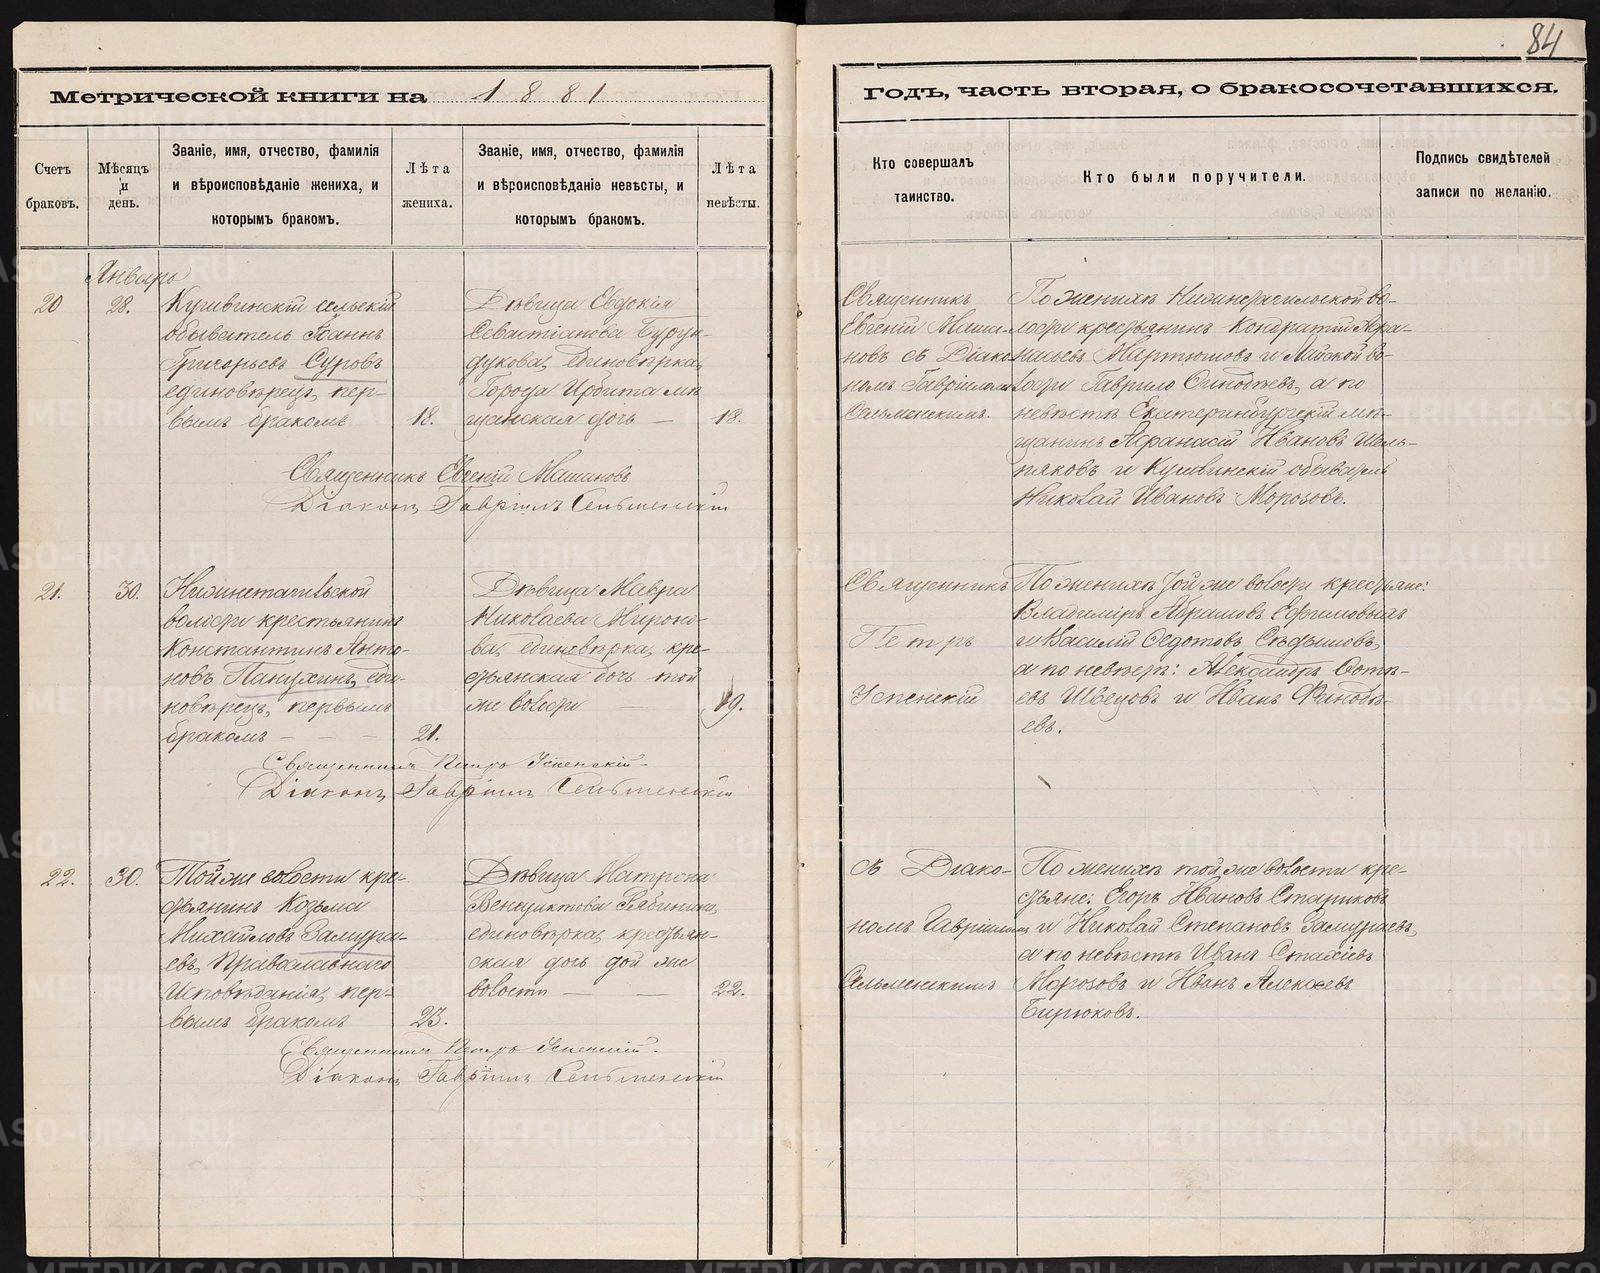 84
Метрической книги на 1881
Годъ, часть вторая, о бракосочетавшихся.
Счетъ браковъ.
Мѣсяцъ и день.
Званіе, имя, отчество, фамилія и вѣроисповѣданіе жениха, и которымъ бракомъ.
Лѣта жениха.
Званіе, имя, отчество, фамилія и вѣроисповѣданіе невѣсты, и которымъ бракомъ.
Лѣта невѣсты.
Кто совершалъ таинство.
Кто были поручители.
Подпись свидѣтелей записи по желанію.
Январь
20
28.
Кушвинскій сельскій
обыватель Іоаннъ
Григорьевъ Суровъ
единовѣрецъ, пер-
вымъ бракомъ
18.
Дѣвица Евдокія
Севастіанова Бурун-
дукова, единовѣрка,
Города Ирбита мѣ
щанская дочь —
18.
Священникъ
Евгеній Маша-
новъ съ Діако
номъ Гавріиломъ
Сельменскимъ.
По женихѣ Нижнетагильской во-
лости крестьянинъ Кондратій Афа-
насьевъ Мартюшовъ и Лайской во-
лости Гаврило Финодѣевъ, а по
невѣстѣ Екатеринбургскій мѣ-
щанинъ Афанасій Ивановъ Шаль-
няковъ и Кушвинскій обыватель
Николай Ивановъ Морозовъ.
Священникъ Евгеній Машановъ
Діаконъ Гавріилъ Сельменскій
21.
30.
Нижнетагильской
волости крестьянинъ
Константинъ Анто-
новъ Панухинъ, еди-
новѣрецъ, первымъ
бракомъ — — —
21.
Дѣвица Мавра
Николаева Мироно-
ва, единовѣрка, кре-
стьянская дочь той
же волости
19.
Священникъ
Петръ
Успенскій
По женихѣ той же волости крестьяне:
Владиміръ Абрамовъ
и Василій Федотовъ Сѣдышовъ,
а по невѣстѣ: Александръ Фоти-
евъ Швецовъ и Иванъ Финодѣ-
евъ.
Священникъ Петръ Успенскій
Діаконъ Гавріилъ Сельменскій
22.
30.
Той же волости кре-
стьянинъ Козьма
Михайловъ Замура-
евъ, Православнаго
Исповѣданія, пер-
вымъ бракомъ
23.
Дѣвица Матрона
Венедиктова Рябинина,
единовѣрка, крестьян-
ская дочь той же
волости — —
22.
съ Діако-
номъ Гавріиломъ
Сельменскимъ
По женихѣ той же волости кре-
стьяне: Егоръ Ивановъ Стариковъ
и Николай Степановъ Замураевъ,
а по невѣстѣ Иванъ Стахіевъ
Морозовъ и Иванъ Алексѣевъ
Бирюковъ.
Священникъ Петръ Успенскій.
Діаконъ Гавріилъ Сельменскій
METRIKI.GASO-URAL.RU